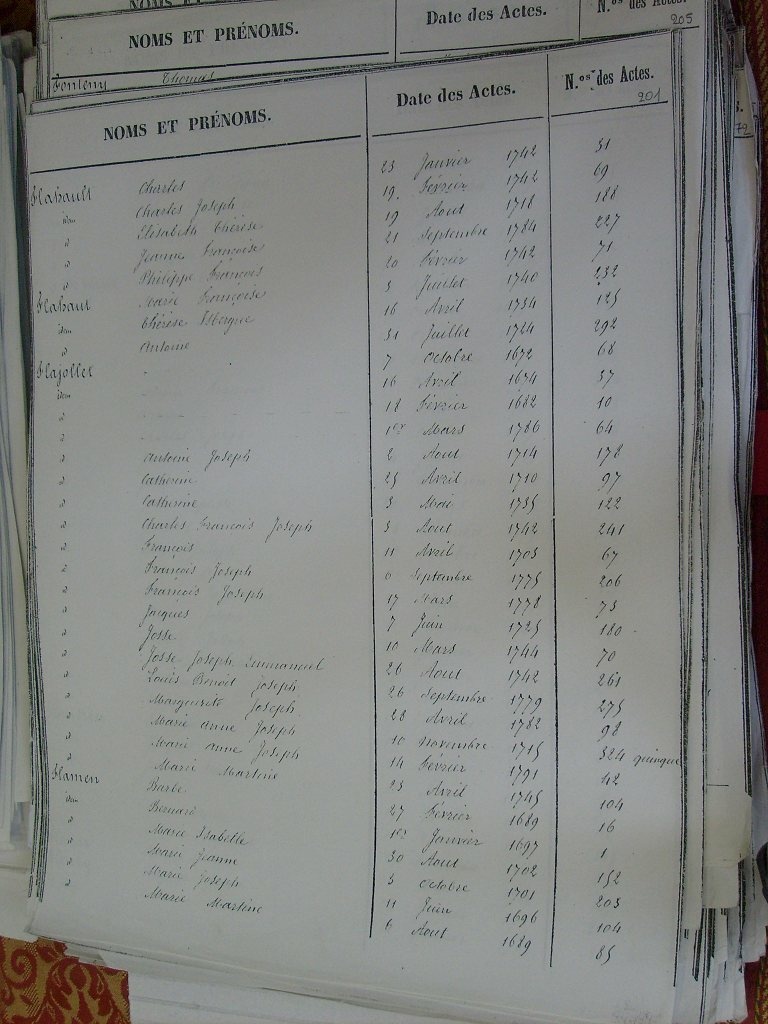 NOMS ET PRÉNOMS. Date des Actes. N.os des Actes.
205
Fonteny Thomas
NOMS ET PRÉNOMS. Date des Actes. N.os des Actes.
201
Flahault Charles 23 Janvier 1742 31
idem Charles Joseph 19. Février 1742 69
d Elisabeth Thérèse 19 Aout 1718 188
d Jeanne Françoise 21 Septembre 1784 227
d Philippe François 20 Février 1742 71
Flahaut Marie Françoise 3 Juillet 1740 232
idem Thérèse Isbergue 16 Avril 1734 125
d Antoine 31 Juillet 1724 292
Flajollet - 7 Octobre 1672 68
idem - 16 Avril 1674 37
d - 18 Février 1682 10
d - 1er Mars 1786 64
d Antoine Joseph 2 Aout 1714 178
d Catherine 25 Avril 1710 97
d Catherine 3 Mai 1735 122
d Charles François Joseph 3 Aout 1742 241
d François 11 Avril 1703 67
d François Joseph 6 Septembre 1775 206
d François Joseph 17 Mars 1778 73
d Jacques 7 Juin 1725 180
d Josse 10 Mars 1744 70
d Josse Joseph Emmanuel 26 Aout 1742 261
d Louis Benoit Joseph 26 Septembre 1779 275
d Marguerite Joseph 28 Avril 1782 98
d Marie Anne Joseph 10 Novembre 1715 324 quinque
d Marie Anne Joseph 14 Fevrier 1791 42
d Marie Martine 23 Avril 1745 104
Flamen Barbe 27 Février 1689 16
idem Bernard 1er Janvier 1697 1
d Marie Isabelle 30 Aout 1702 152
d Marie Jeanne 3 Octobre 1701 203
d Marie Joseph 11 Juin 1696 104
d Marie Martine 6 Aout 1689 85